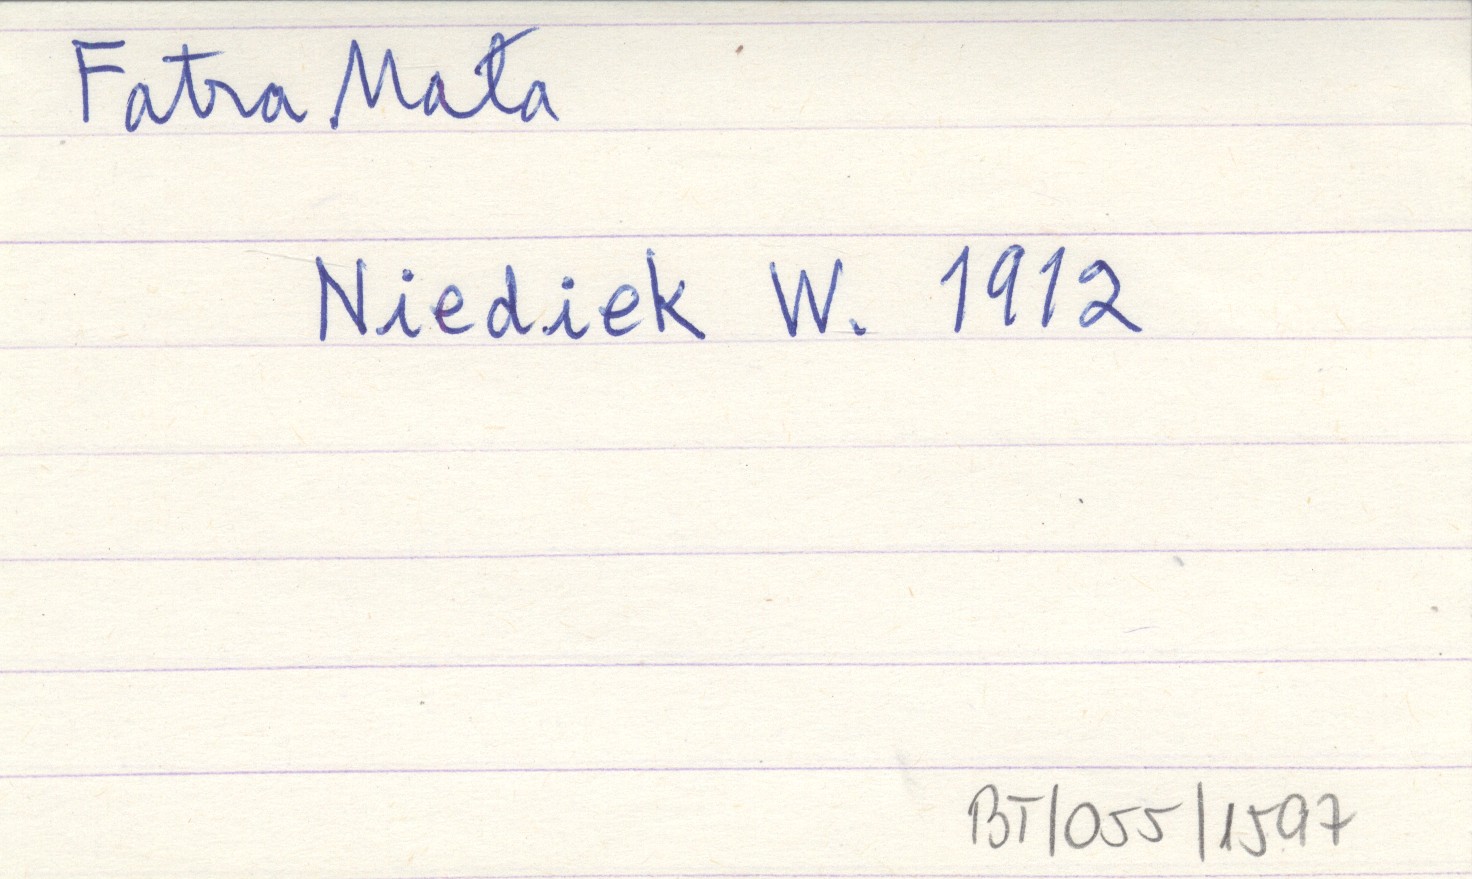 Fatra Mała
Niediek W. 1912
BT/055/1597